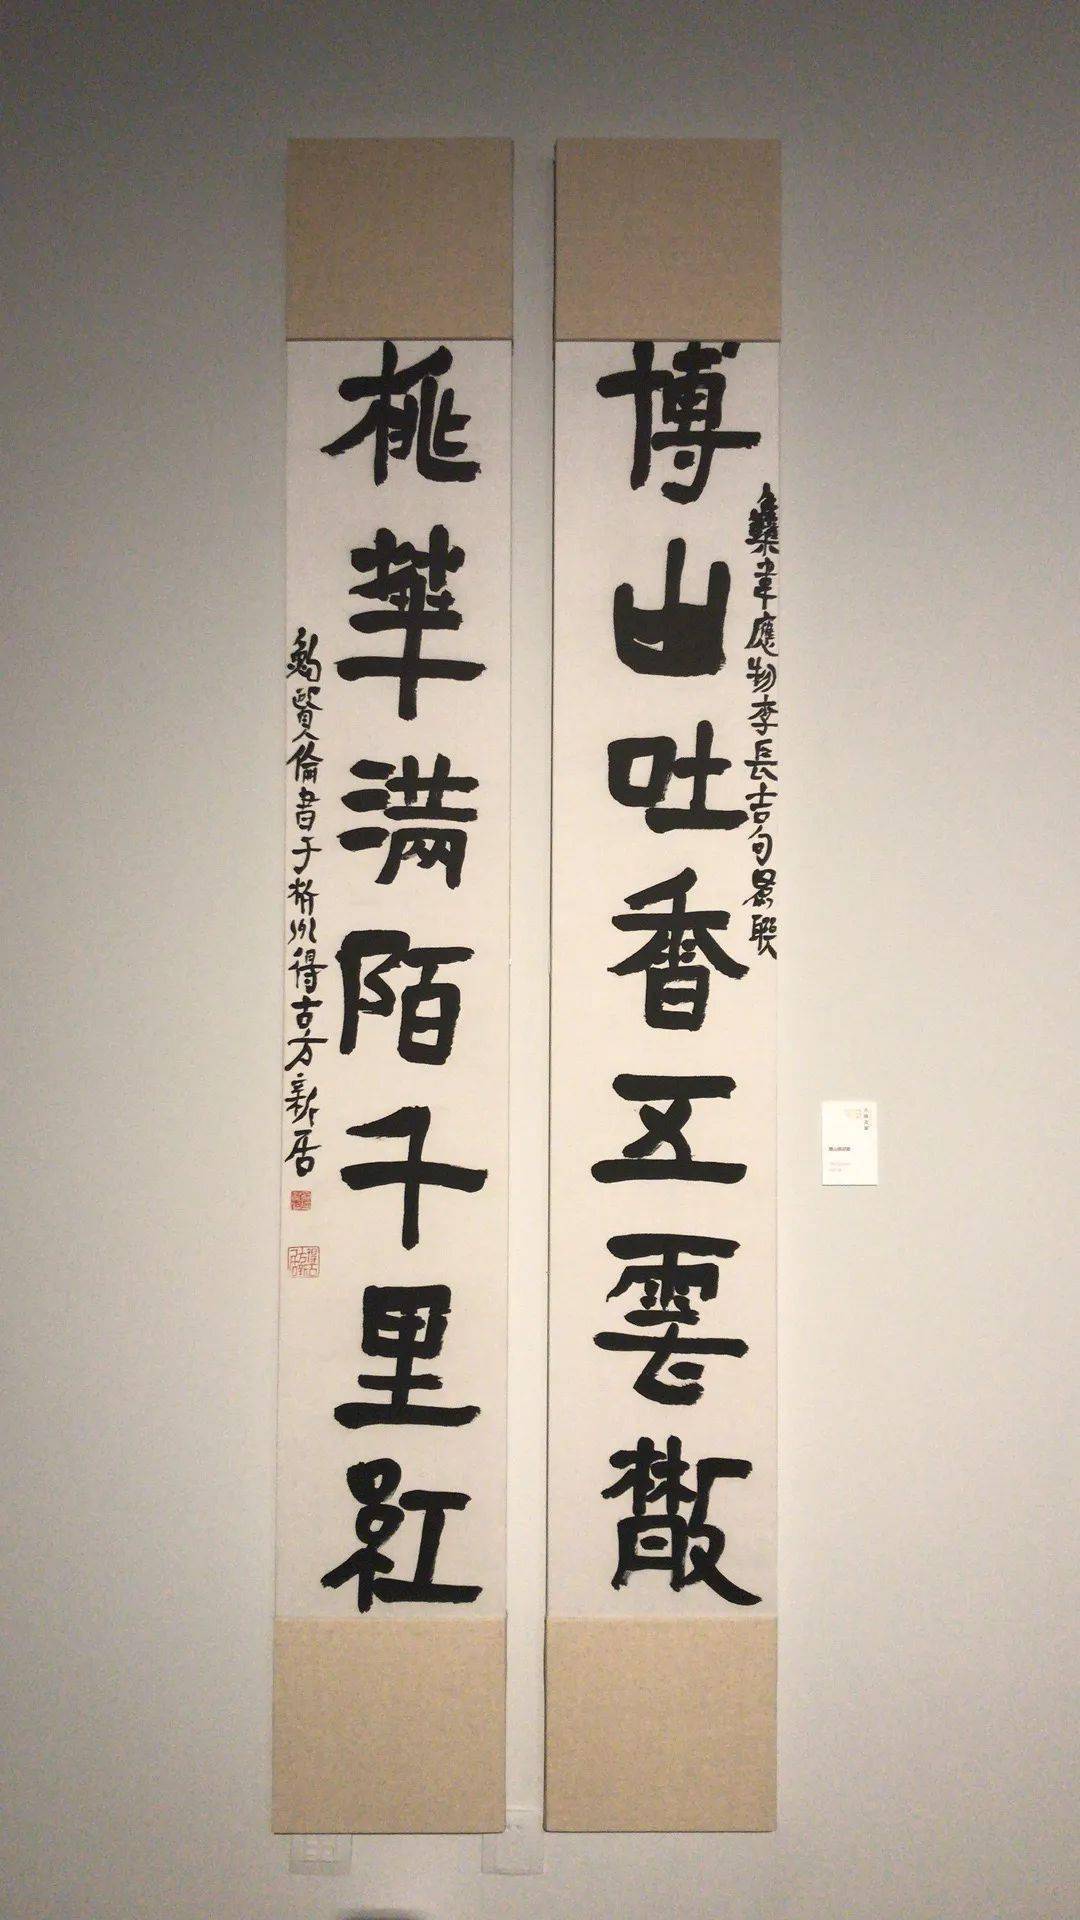 集韋應物李長吉句為聯
博山吐香五雲散
桃華滿陌千里紅
鮑賢倫書于杭州得古方新居